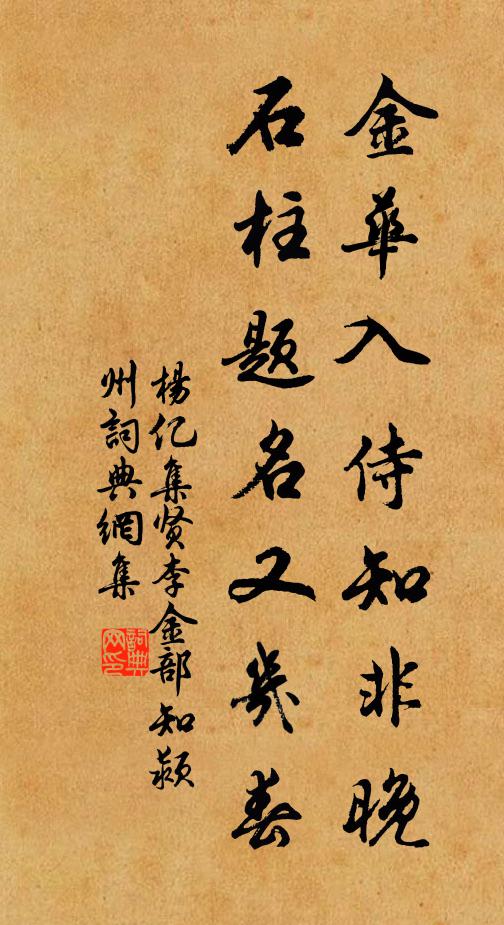 金華入侍知非晚
石柱題名又幾春
楊亿集贤李金部知颍
州詞典網集
詞典网印